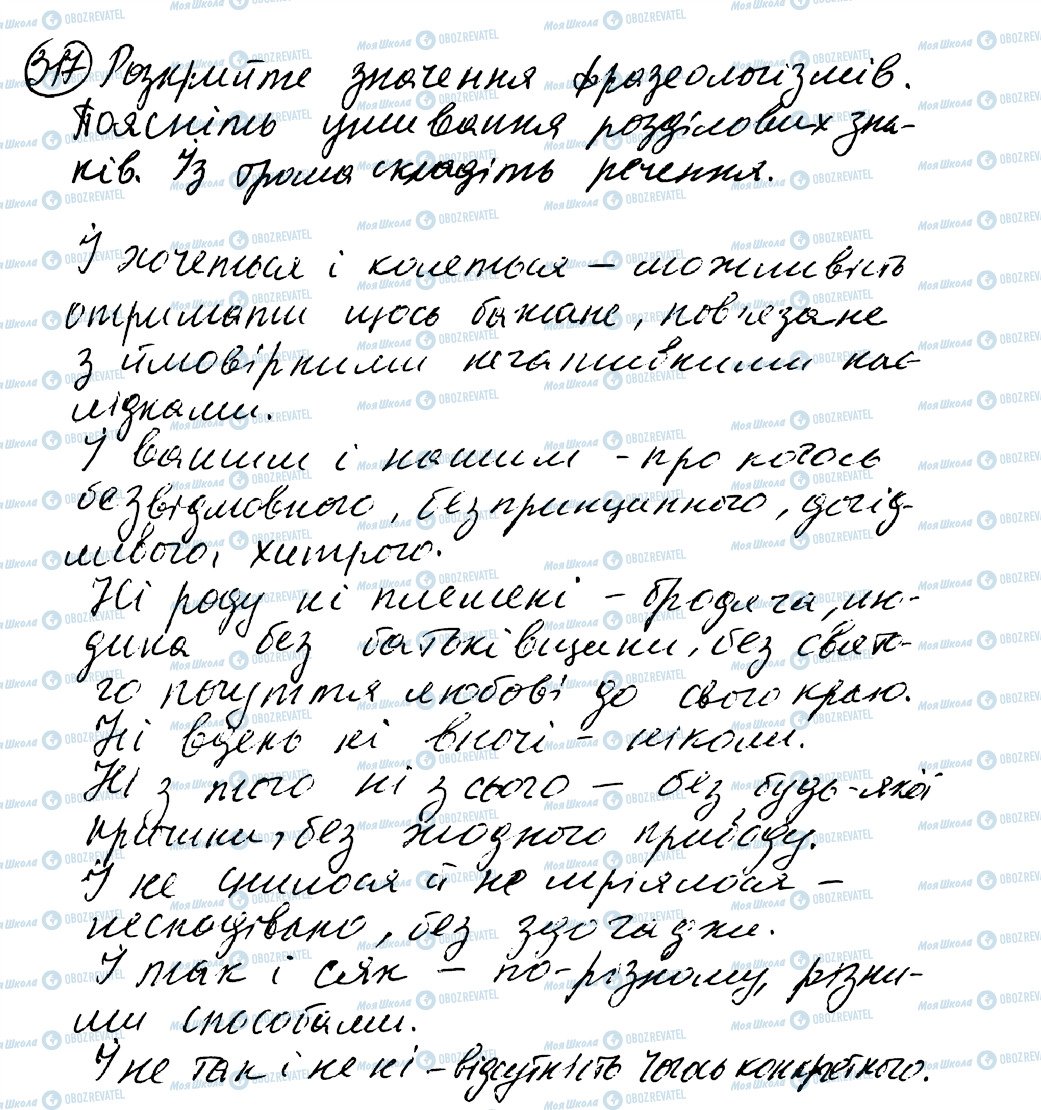 317 Розкрийте значення фразеологізмів.
Поясніть уживання розділових зна-
ків. Із трьома складіть речення.
І хочеться і колеться – можливість
отримати щось бажане, пов'язане
з ймовірними негативними нас-
лідками.
І вашим і нашим - про когось
безвідмовного, безпринципного, догід-
ливого, хитрого.
Ні роду ні племені – бродяча, лю-
дина без батьківщини, без свято-
го почуття любові до свого краю.
Ні вдень ні вночі – ніколи.
Ні з того ні з сього – без будь-якої
причини, без жодного приводу.
І не снилося й не мріялося –
несподівано, без здогадки.
І так і сяк – по-різному, різни-
ми способами.
І не так і не ні – відсутність чогось конкретного.